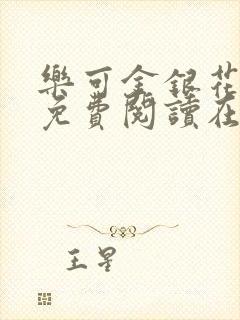 樂可金銀花
免費閱讀在
王星